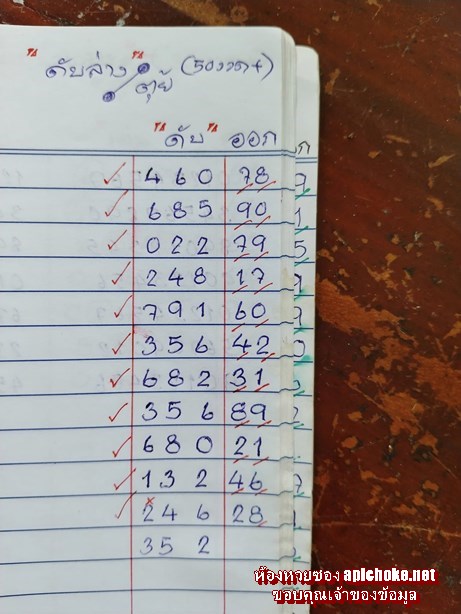 "ดับล่าง" (50งวด+)
ตุย์
"ดับ" ออก
460 78
685 90
022 79
248 17
791 60
356 42
682 31
356 89
680 21
132 46
246 28
352
ห้องหวยซอง apichoke.net
ขอบคุณเจ้าของข้อมูล